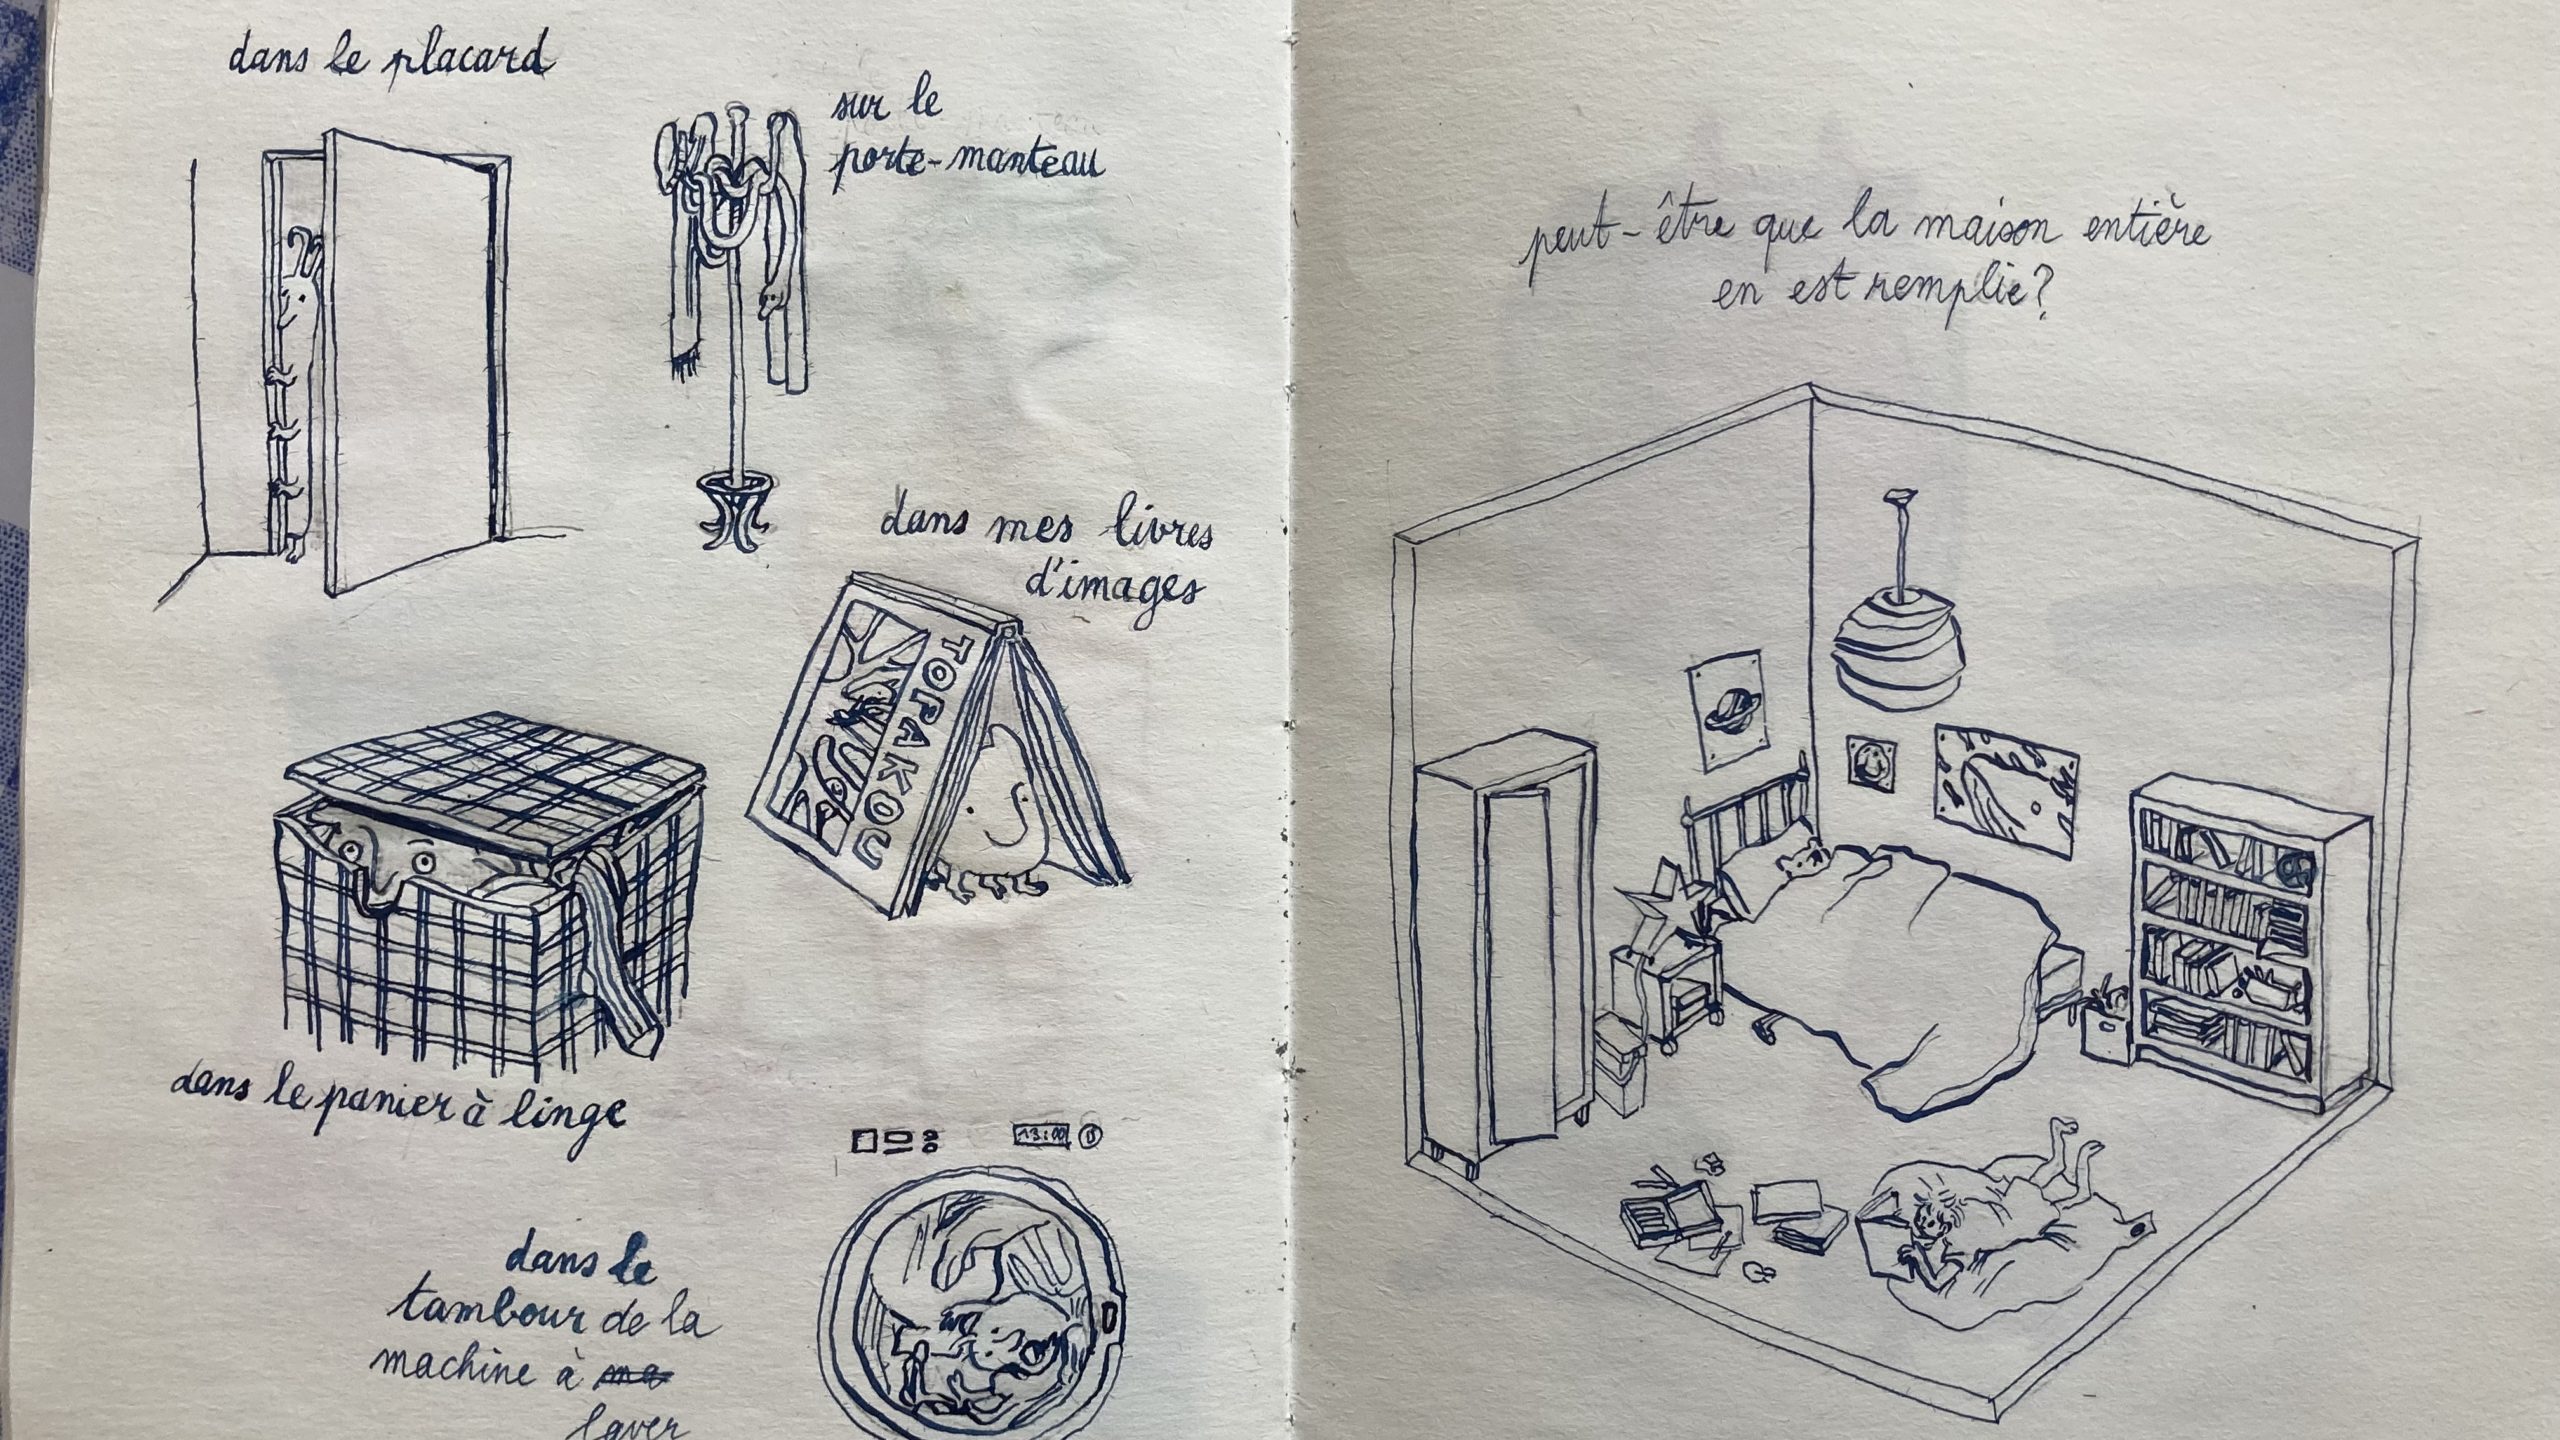 dans le placard
sur le
porte-manteau
dans mes livres
d'images
TOPAKOU
dans le panier à linge
13:00
dans le
tambour de la
machine à ma
laver
peut-être que la maison entière
en est remplie?